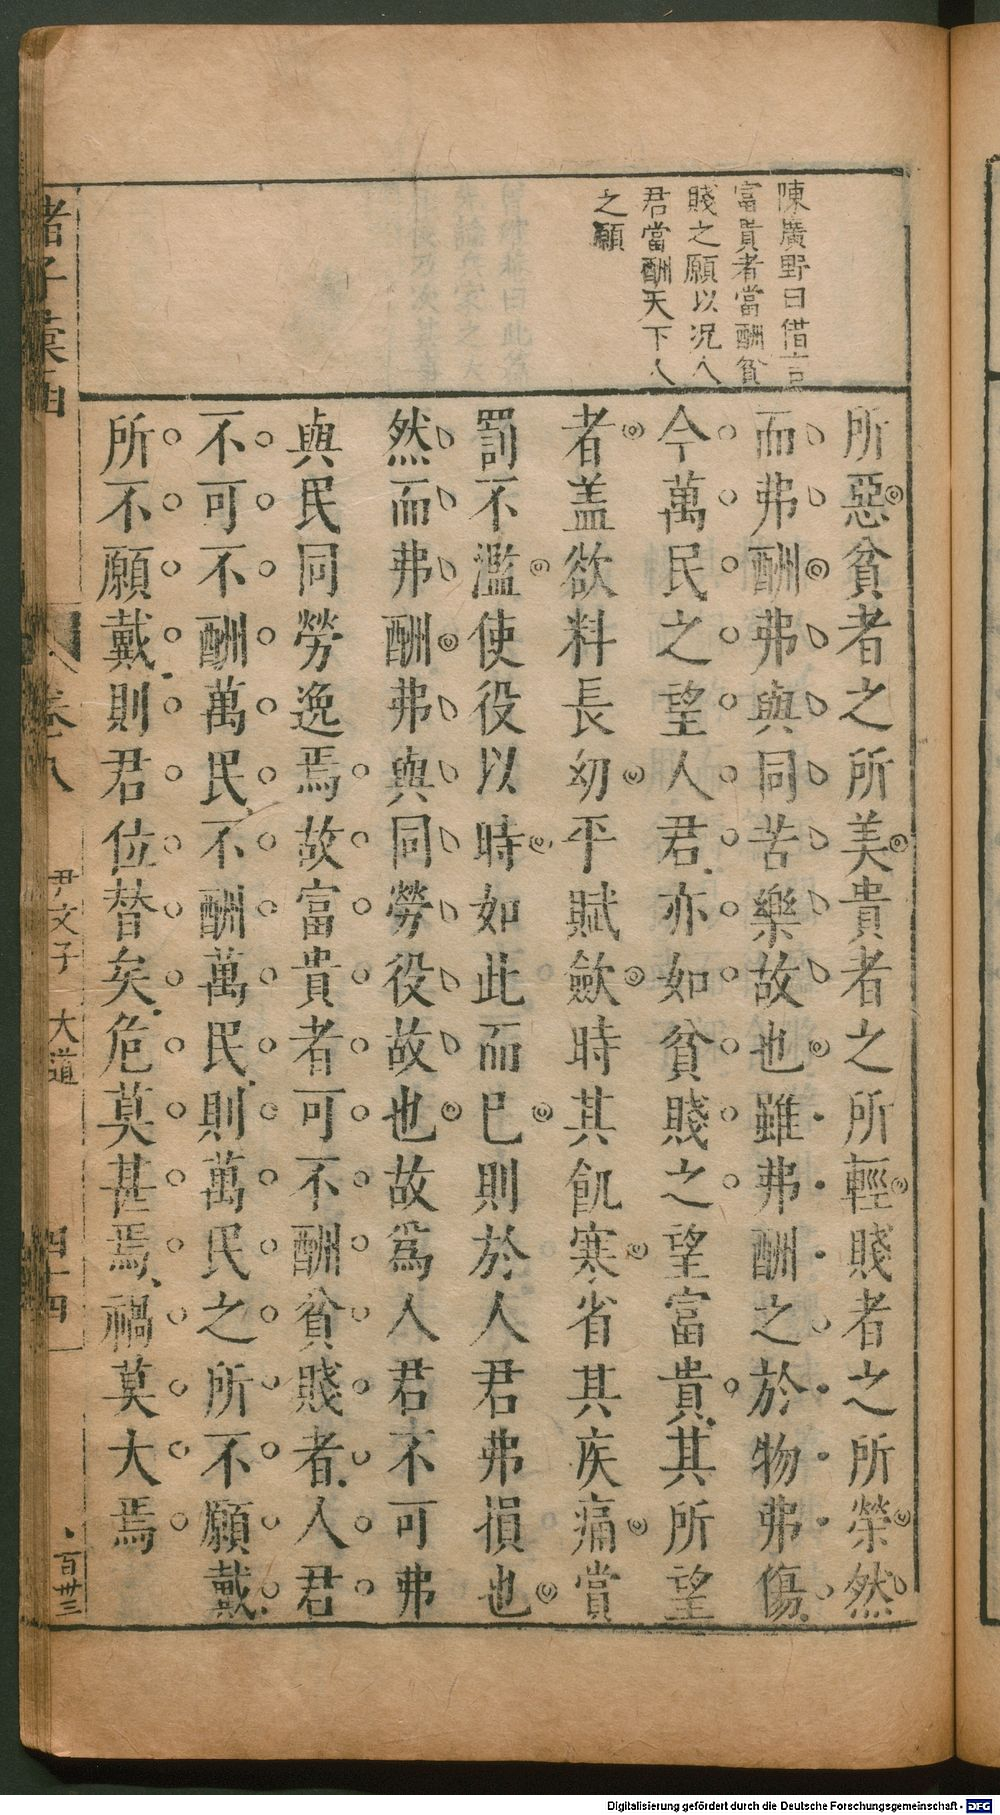 陳廣野曰借言
富貴者當酬貧
賤之願以况人
君當酬天下人
之願
所惡貧者之所美貴者之所輕賤者之所榮然
而弗酬弗與同苦樂故也雖弗酬之於物弗傷
今萬民之望人君亦如貧賤之望富貴其所望
者盖欲料長幼平賦歛時其飢寒省其疾痛賞
罰不濫使役以時如此而已則於人君弗損也
然而弗酬弗與同勞役故也故爲人君不可弗
與民同勞逸焉故富貴者可不酬貧賤者人君
不可不酬萬民不酬萬民則萬民之所不願戴
所不願戴則君位替矣危莫甚焉禍莫大焉
諸子彙函
卷之八
尹文子 大道
四十四
百卅三
Digitalisierung gefördert durch die Deutsche Forschungsgemeinschaft - DFG